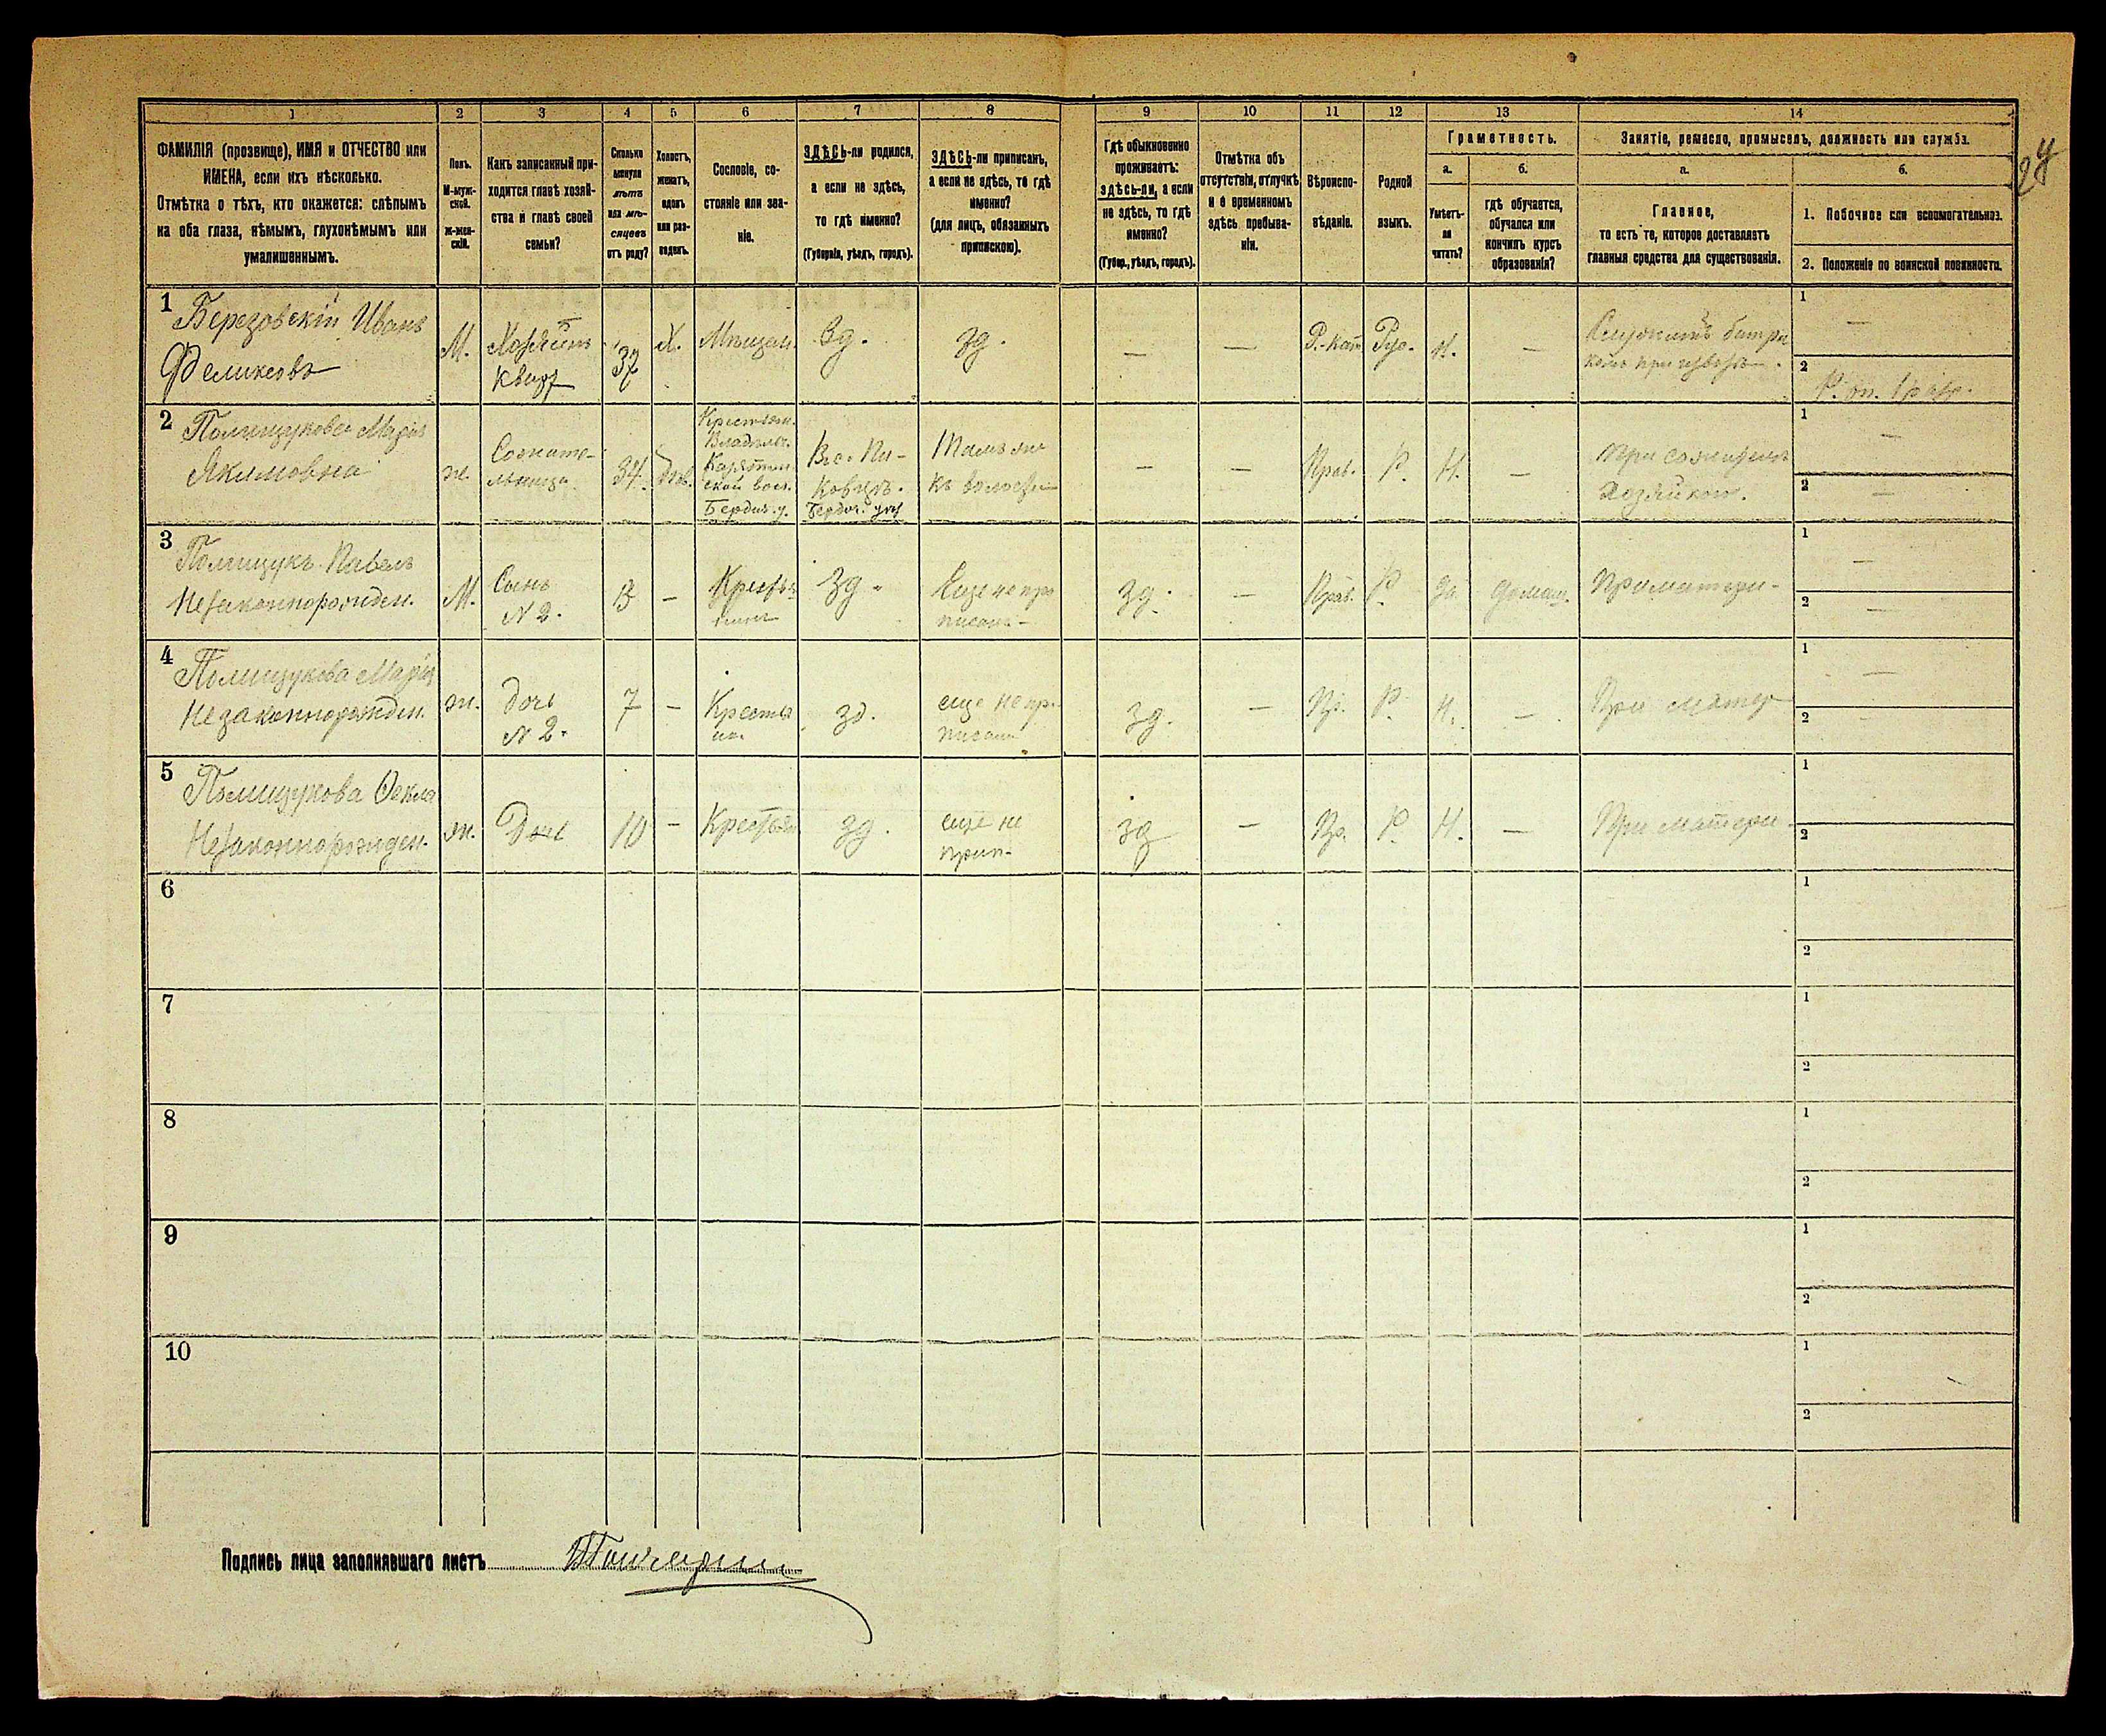 1 2 3 4 5 6 7 8 9 10 11 12 13 14
ФАМИЛІЯ (прозвище), ИМЯ и ОТЧЕСТВО или
ИМЕНА, если ихъ нѣсколько.
Отмѣтка о тѣхъ, кто окажется: слѣпымъ
на оба глаза, нѣмымъ, глухонѣмымъ или
умалишеннымъ.
Полъ.
М-муж-
ской.
ж-жен-
скій.
Какъ записанный при-
ходится главѣ хозяй-
ства и главѣ своей
семьи?
Сколько
минуло
лѣтъ
или мѣ-
сяцевъ
отъ роду?
Холостъ,
женатъ,
вдовъ
или раз-
веденъ.
Сословіе, со-
стояніе или зва-
ніе.
ЗДѢСЬ-ли родился,
а если не здѣсь,
то гдѣ именно?
(Губернія, уѣздъ, городъ).
ЗДѢСЬ-ли приписанъ,
а если не здѣсь, то гдѣ
именно?
(для лицъ, обязанныхъ
припискою).
Гдѣ обыкновенно
проживаетъ:
здѣсь-ли, а если
не здѣсь, то гдѣ
именно?
(Губер., уѣздъ, городъ).
Отмѣтка объ
отсутствіи, отлучкѣ
и о временномъ
здѣсь пребыва-
ніи.
Вѣроиспо-
вѣданіе.
Родной
языкъ.
Грамотность.
а.
Умѣетъ-
ли
читать?
б.
гдѣ обучается,
обучался или
кончилъ курсъ
образованія?
Занятіе, ремесло, промыселъ, должность или служба.
а.
Главное,
то есть то, которое доставляетъ
главныя средства для существованія.
б.
1. Побочное или вспомогательное.
2. Положеніе по воинской повинности.
1 Березовскій Иванъ
Феликсовъ
М.
Хозяинъ
кварт
37
Х.
Мѣщан.
Зд.
зд.
—
—
Р.-кат.
Рус.
Н.
—
Служитъ батра
комъ при
1 —
2
2 Полищукова Марія
Якимовна
ж.
Сожите-
льница
34.
Крестьян.
Владѣльч.
ской вол.
Бердич. у.
Тамъ же
къ волости
—
—
Прав.
Р.
Н.
—
При сожителѣ
Хозяйкой.
1 —
2 —
3 Полищукъ Павелъ
Незаконнорожден.
М.
Сынъ
N 2.
13
—
Крестья
нинъ
Зд.
Еще не при
писанъ -
Зд.
—
Прав.
Р.
да
домаш.
При матери -
1 —
2 —
4 Полищукова Марія
Незаконнорожден.
ж.
дочь
N 2.
7
—
Крестья
нка
зд.
еще не пр.
писана
зд.
—
Пр.
Р.
Н.
—
При матер
1 —
2 —
5 Полищукова Ѳекла
Незаконнорожден.
ж.
Дочь
10
—
Крестьян
зд.
еще не
прип-
зд
—
Пр.
Р.
Н.
—
При матери -
1
2
6
1
2
7
1
2
8
1
2
9
1
2
10
1
2
Подпись лица заполнявшаго листъ